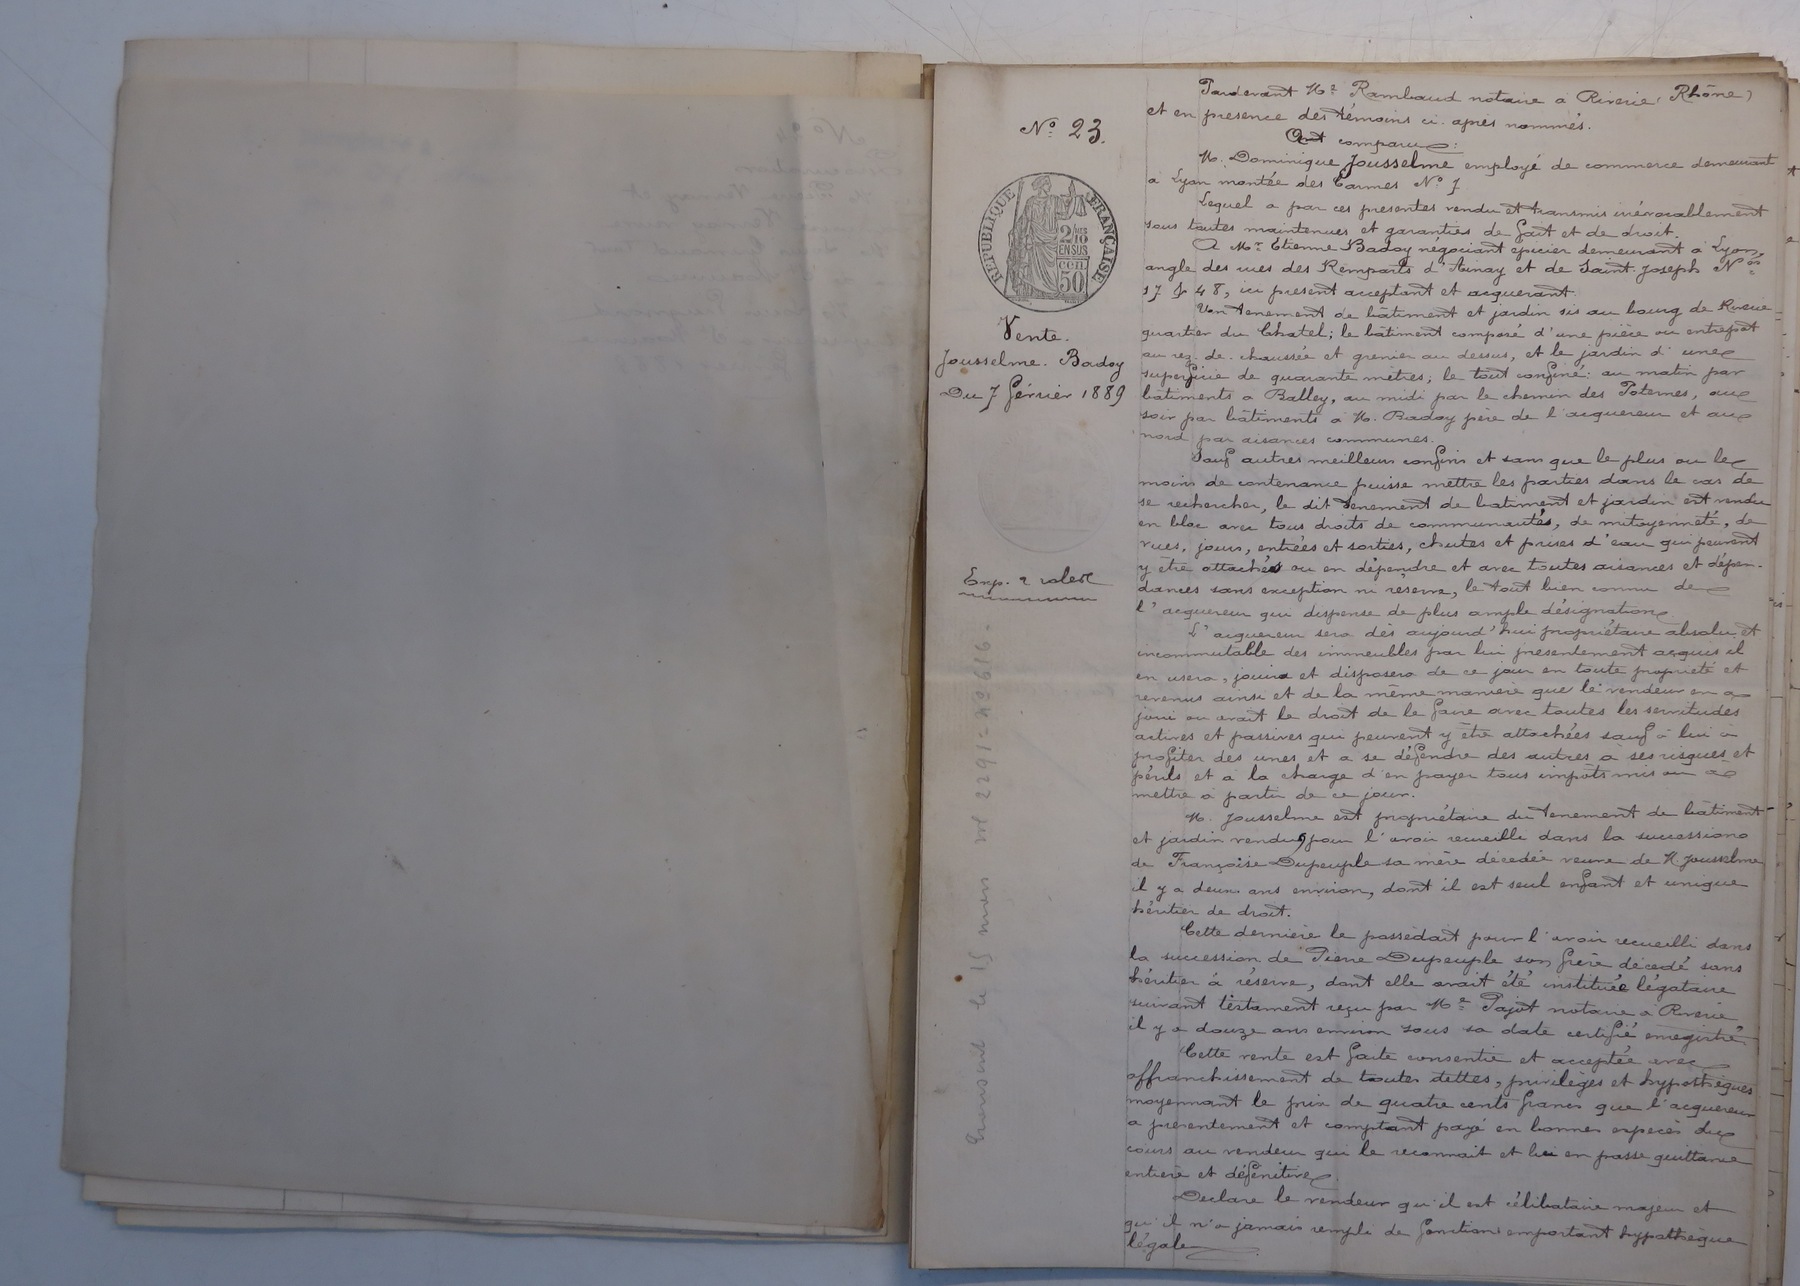 Nº 23.
REPUBLIQUE FRANÇAISE
2/10 EN SUS
50 cen
Vente.
Jousselme. Badoy
Du 7 février 1889
Exp. &
Transcrit le 15 mars vol 2291 - Nº 616.
Pardevant Mᵉ Rambaud notaire à Riverie (Rhône)
et en presence des témoins ci-après nommés.
Ont comparu:
M. Dominique Jousselme employé de commerce demeurant
à Lyon montée des Carmes Nº 7
Lequel a par ces presentes vendu et transmis irrévocablement
sous toutes maintenues et garanties de fait et de droit.
A Mr Etienne Badoy négociant épicier demeurant à Lyon,
angle des rues des Remparts d'Ainay et de Saint-Joseph Nos
17 & 48, ici present acceptant et acquerant.
Un tenement de bâtiment et jardin sis au bourg de Riverie
quartier du Chatel; le bâtiment composé d'une pièce ou entrepôt
au rez-de-chaussée et grenier au dessus, et le jardin d'une
superficie de quarante mètres; le tout confiné: au matin par
bâtiments à Balley, au midi par le chemin des Poternes, au
soir par bâtiments à M. Badoy père de l'acquereur et au
nord par aisances communes.
Sauf autres meilleurs confins et sans que le plus ou le
moins de contenance puisse mettre les parties dans le cas de
se rechercher, le dit tenement de batiment et jardin est vendu
en bloc avec tous droits de communautés, de mitoyenneté, de
vues, jours, entrées et sorties, chutes et prises d'eau qui peuvent
y être attachés ou en dépendre et avec toutes aisances et dépen-
dances sans exception ni réserve, le tout bien connu de
l'acquereur qui dispense de plus ample désignation
L'acquereur sera dès aujourd'hui propriétaire absolu et
incommutable des immeubles par lui presentement acquis il
en usera, jouira et disposera de ce jour en toute propriété et
revenus ainsi et de la même manière que le vendeur en a
joui ou avait le droit de le faire avec toutes les servitudes
actives et passives qui peuvent y être attachées sauf à lui à
profiter des unes et a se défendre des autres à ses risques et
périls et a la charge d'en payer tous impôts mis ou à
mettre à partir de ce jour.
M. Jousselme est propriétaire du tenement de bâtiment
et jardin vendus pour l'avoir recueilli dans la succession
de Françoise Dupeuple sa mère décédée veuve de M. Jousselme
il y a deux ans environ, dont il est seul enfant et unique
héritier de droit.
Cette dernière le possédait pour l'avoir recueilli dans
la succession de Pierre Dupeuple son frère décédé sans
héritier à réserve, dont elle avait été instituée légataire
suivant testament reçu par Mᵉ Pajot notaire à Riverie
il y a douze ans environ sous sa date certifié enregistré.
Cette vente est faite consentie et acceptée avec
affranchissement de toutes dettes, privilèges et hypothèques
moyennant le prix de quatre cents francs que l'acquereur
a presentement et comptant payé en bonnes especes du
cours au vendeur qui le reconnait et lui en passe quittance
entière et définitive.
Declare le vendeur qu'il est célibataire majeur et
qu'il n'a jamais rempli de fonctions emportant hypothèque
légale